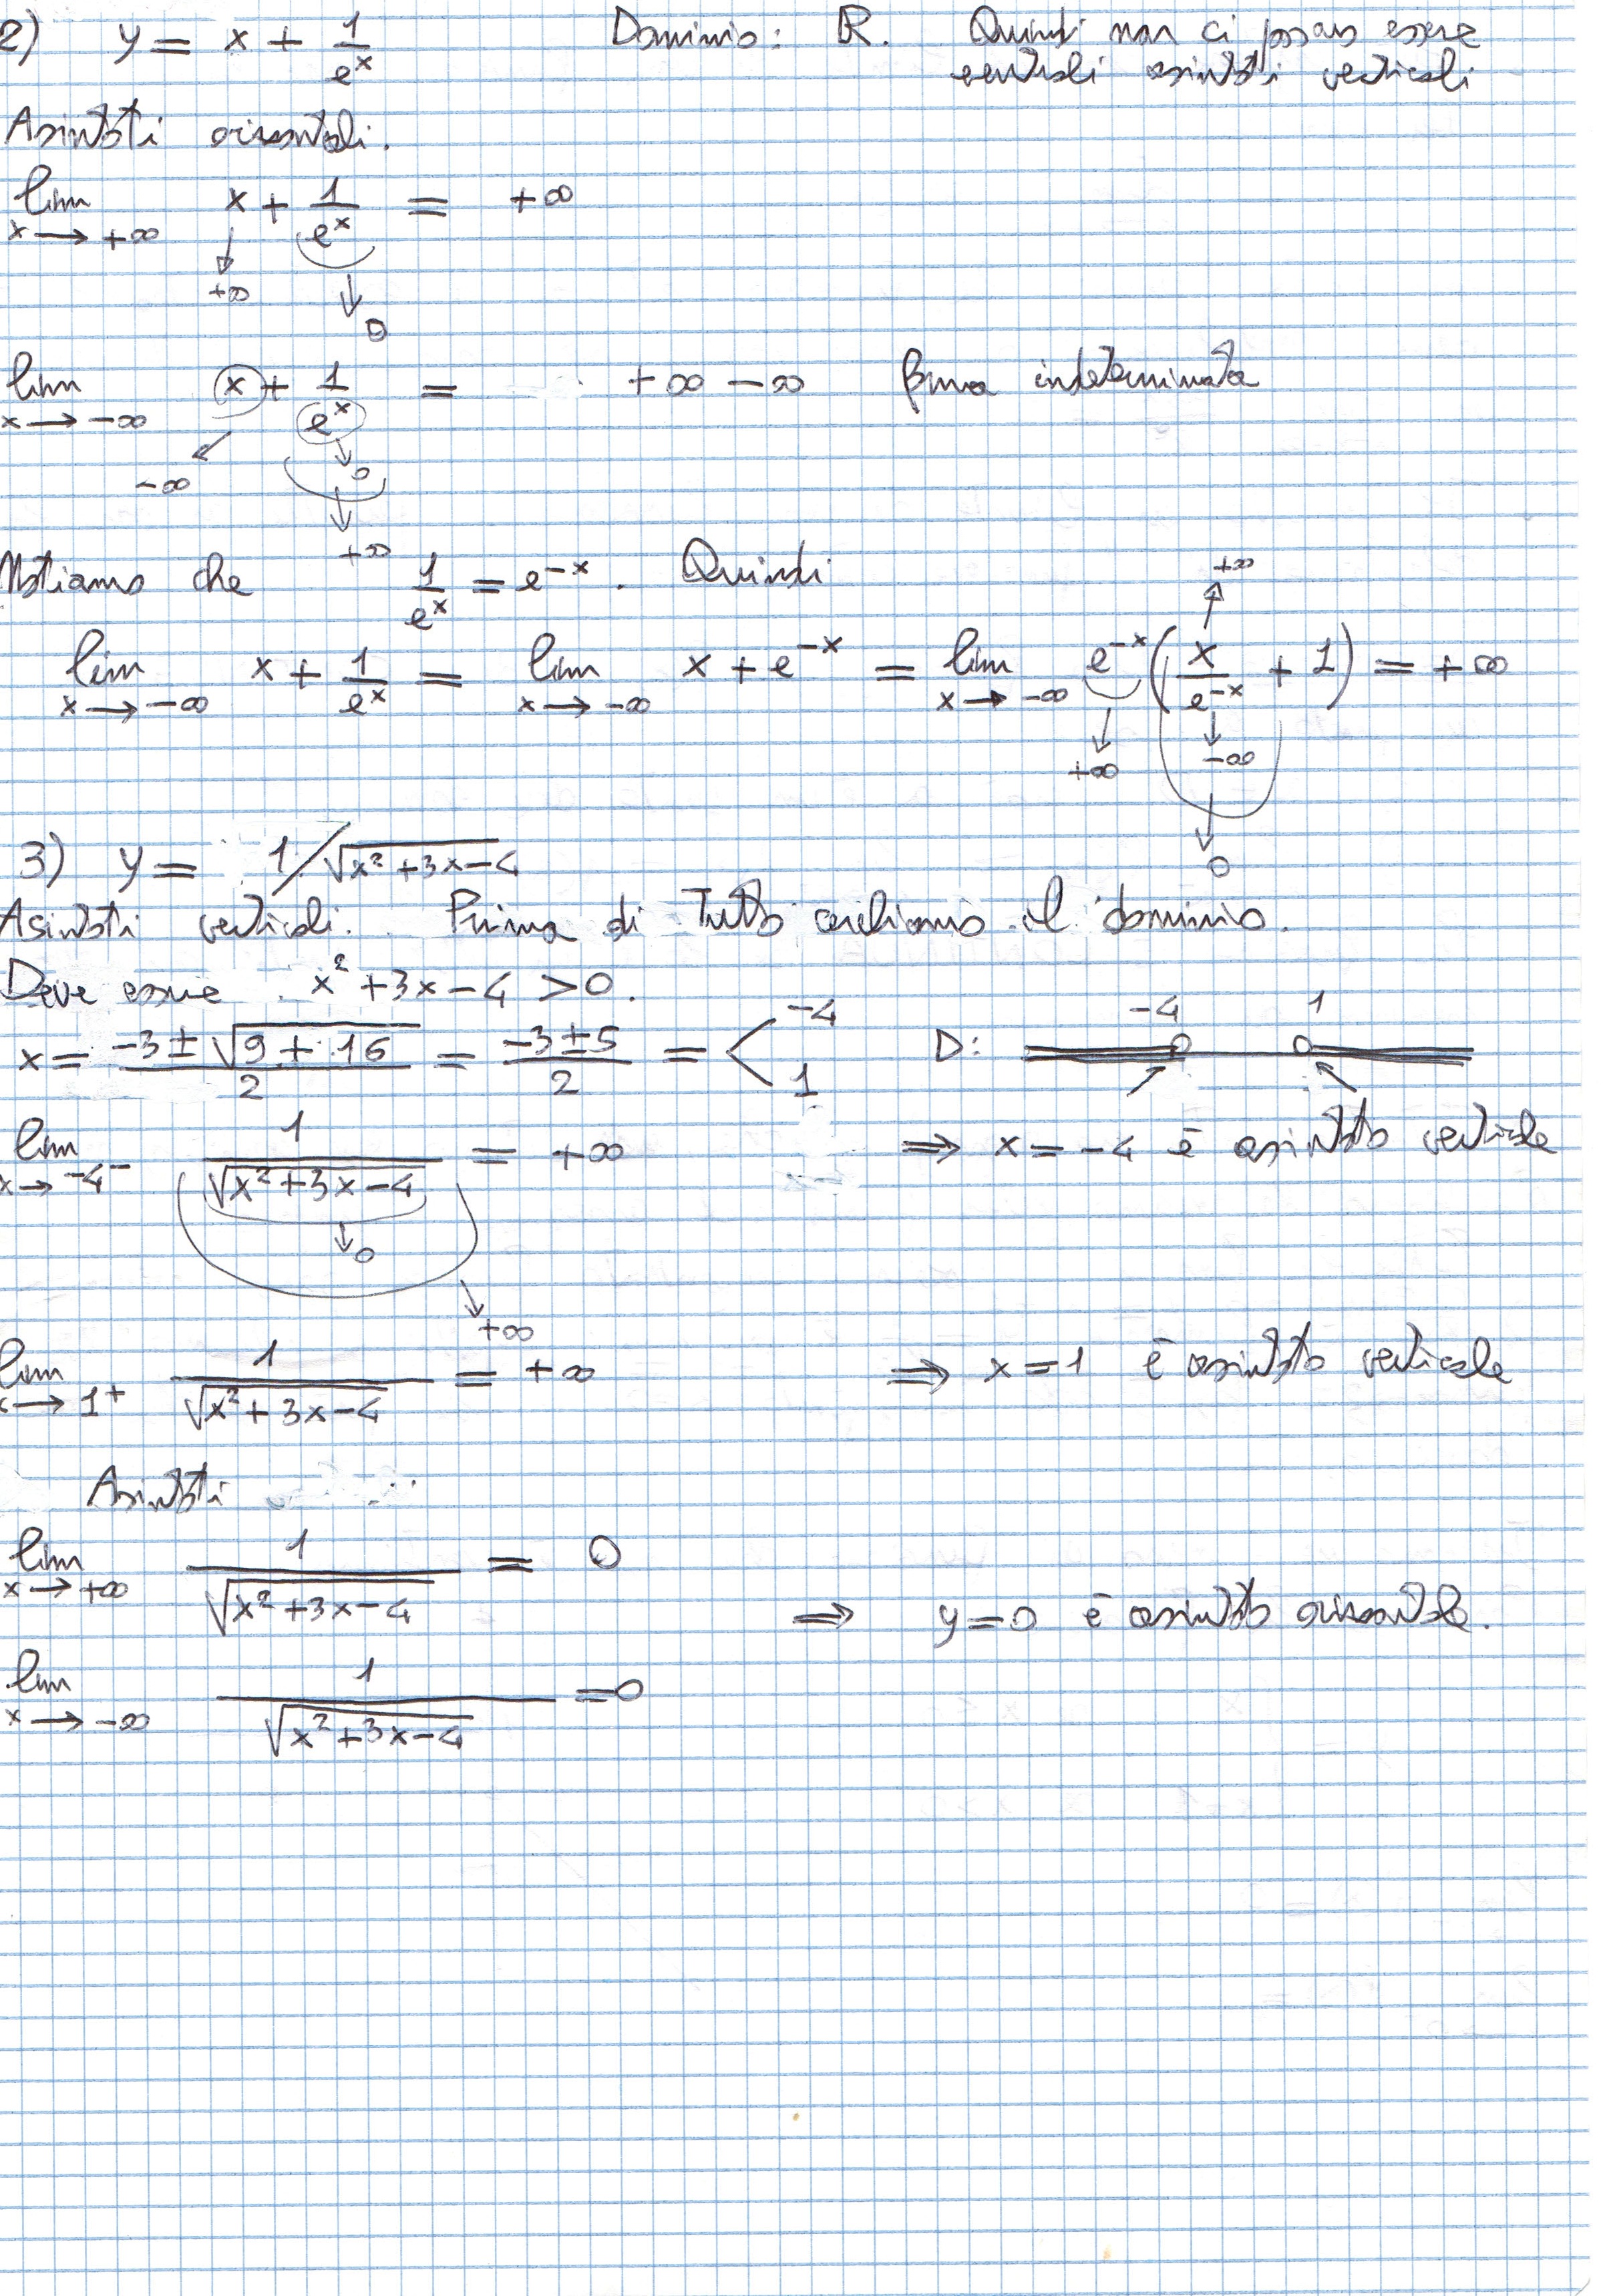 2) y = x + 1/e^x Dominio: R. Quindi non ci possono essere
eventuali asintoti verticali
Asintoti orizzontali.
lim x→+∞ x + 1/e^x = +∞
+∞
0
lim x→-∞ x + 1/e^x = +∞ -∞ forma indeterminata
-∞ 0
+∞
Notiamo che 1/e^x = e^-x. Quindi
+∞
lim x→-∞ x + 1/e^x = lim x→-∞ x + e^-x = lim x→-∞ e^-x (x/e^-x + 1) = +∞
+∞ -∞
0
3) y = 1/√x²+3x-4
Asintoti verticali. Prima di tutto cerchiamo il dominio.
Deve essere x²+3x-4 >0.
x = -3±√9+16/2 = -3±5/2 = < -4 1 D: -4 1
lim x→-4⁻ 1/√x²+3x-4 = +∞ ⇒ x=-4 è asintoto verticale
0
+∞
lim x→1⁺ 1/√x²+3x-4 = +∞ ⇒ x=1 è asintoto verticale
Asintoti
lim x→+∞ 1/√x²+3x-4 = 0
⇒ y=0 è asintoto orizzontale.
lim x→-∞ 1/√x²+3x-4 =0